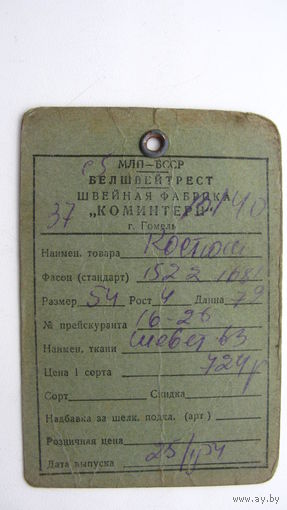 МЛП—БССР
БЕЛШВЕЙТРЕСТ
ШВЕЙНАЯ ФАБРИКА
37 „КОМИНТЕРН“
г. Гомель
Наимен. товара Костюм
Фасон (стандарт) 1522 1681
Размер 54 Рост 4 Длина 79
№ прейскуранта 16-26
Наимен. ткани 63
Цена 1 сорта 724р
Сорт Скидка
Надбавка за шелк. подкл. (арт.)
Розничная цена
Дата выпуска 25/
www.ay.by